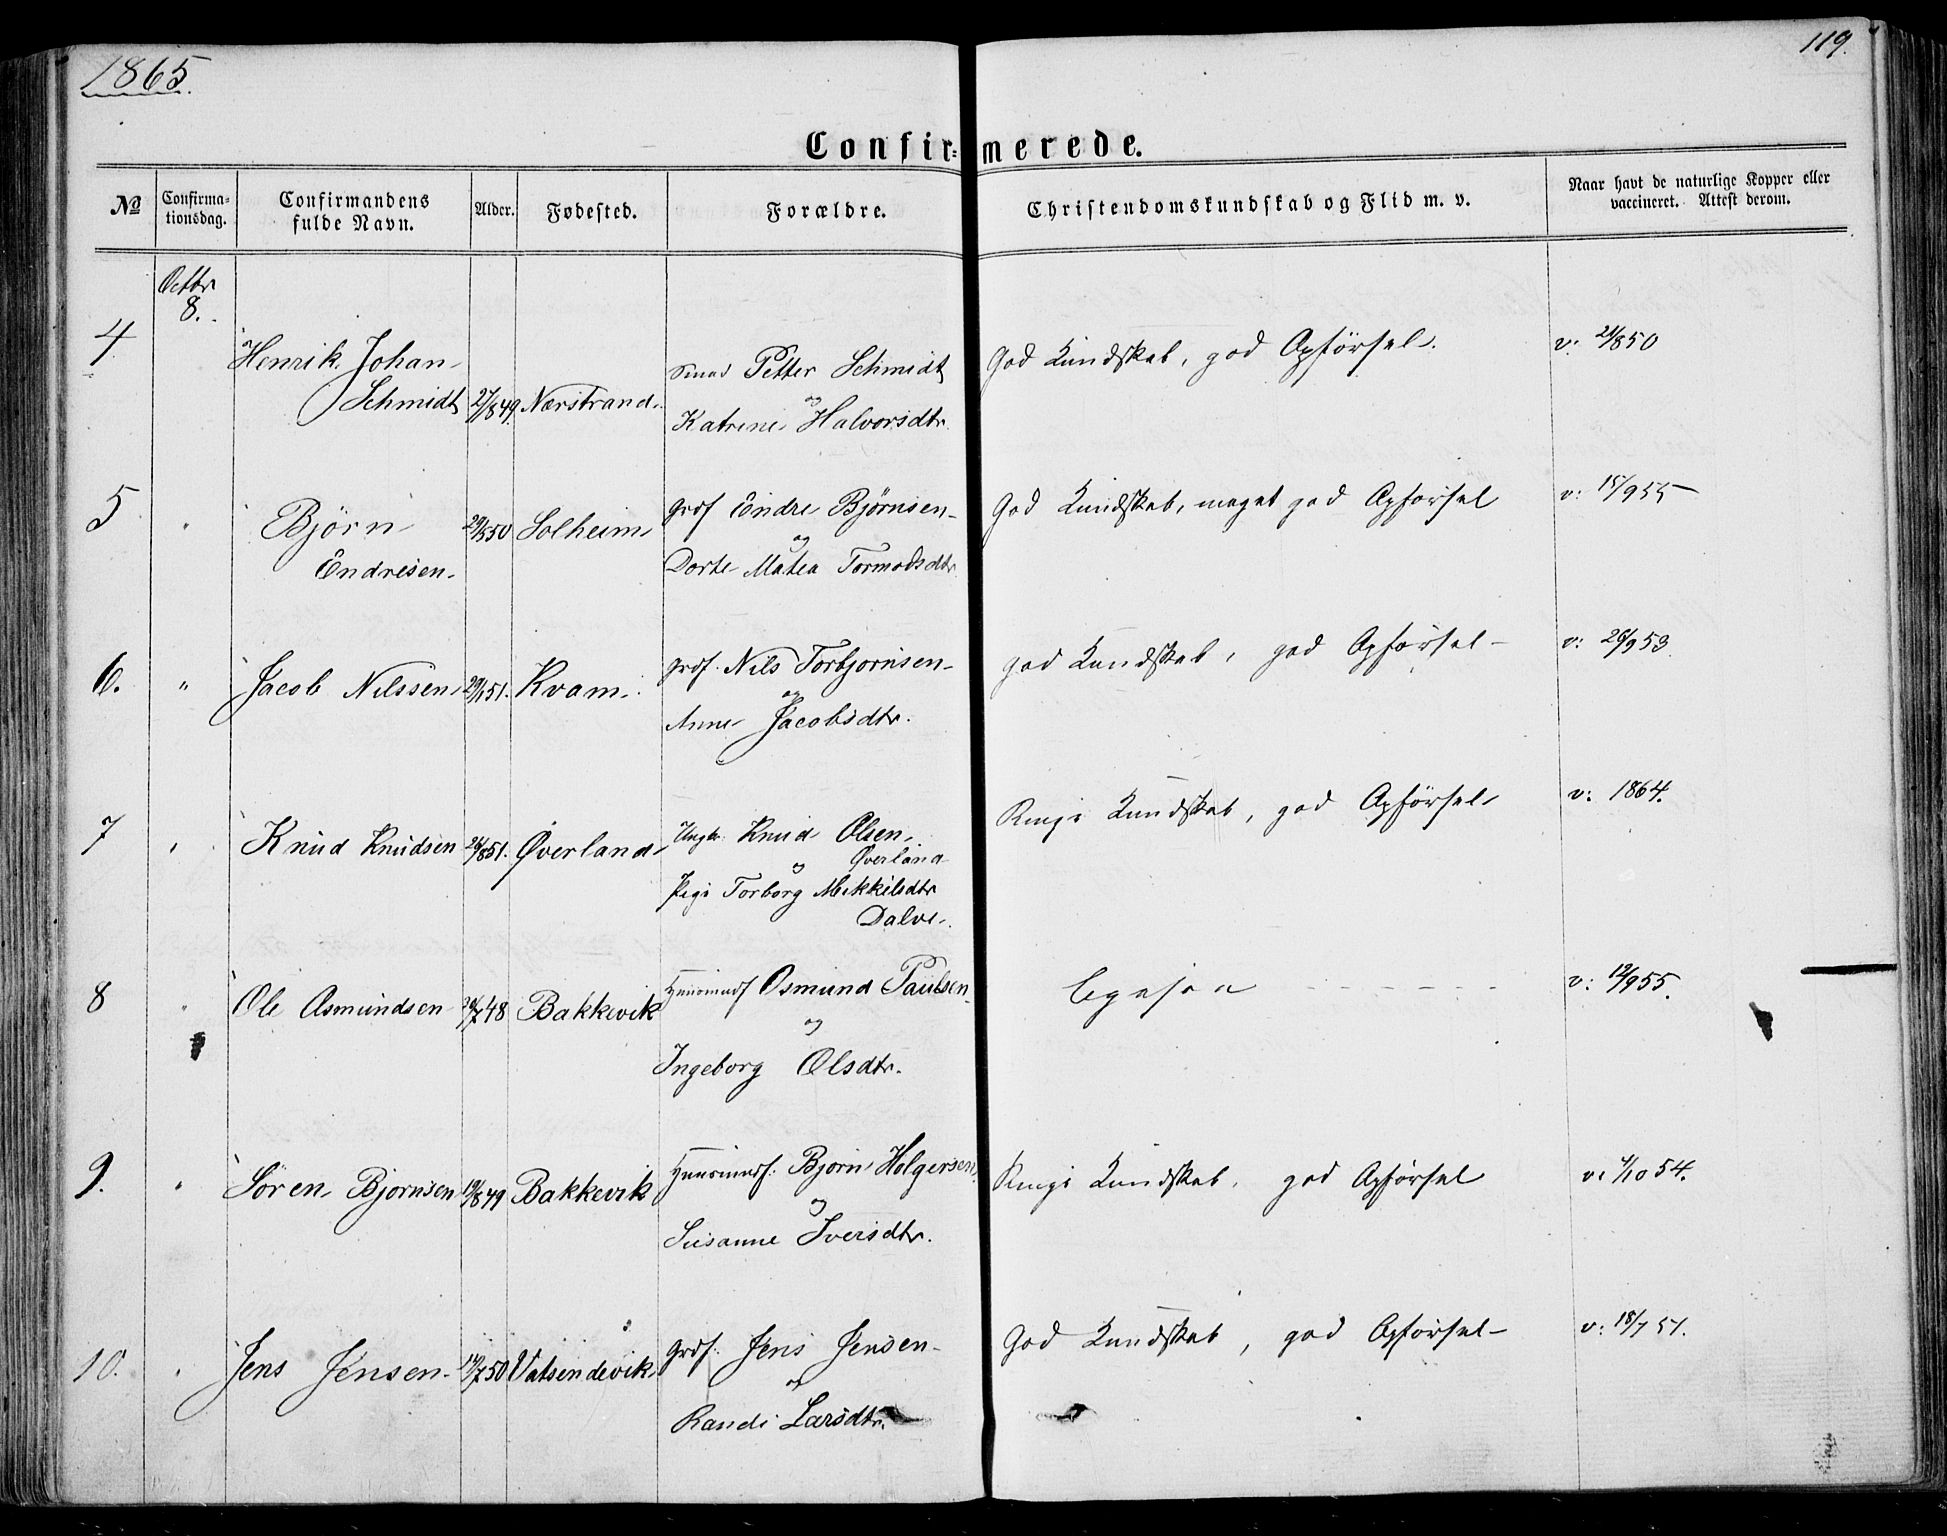 1865.
119.
Confir=merede.
No
Confirma-
tionsdag.
Confirmandens
fulde Navn.
Alder.
Fødested.
Forældre.
Christendomskundskab og Flid m. v.
Naar havt de naturlige Kopper eller
vaccineret. Attest derom.
Octbr
8.
4
Henrik Johan
Schmidt
27/8 49.
Nærstrand
Petter Schmidt
og
Katrine Halvorsdtr
God Kundskab, god Opførsel.
v: 21/8 50
5
"
Bjørn
Endresen
50
Solheim
Endre Bjørnsen
og
Dorte Matea Tormodsdtr
God Kundskab, meget god Opførsel
v: 15/9 55
6.
"
Jacob Nilssen
29/1 51.
Kvam
Nils Torbjørnsen
og
Anne Jacobsdtr.
god Kundskab, god Opførsel
v: 26/9 53
7
"
Knud Knudsen
26/8 51.
Øverland
Ungk. Knud Olsen
Øverland
og
Pige Torborg Mikkilsdtr
Dalve
Ringe Kundskab, god Opførsel
v: 1864.
8
"
Ole Asmundsen
48
Bakkevik
Osmund Paulsen
og
Ingeborg Olsdtr.
Ligesaa
v: 12/9 55.
9.
"
Søren Bjørnsen
19/8 49
Bakkevik
Bjørn Holgersen
og
Susanne Iversdtr.
Ringe Kundskab, god Opførsel
v: 4/10 54.
10.
"
Jens Jensen
50
Vatsendevik
Jens Jensen
og
Randi Larsdtr.
God Kundskab, god Opførsel
v: 18/7 51.